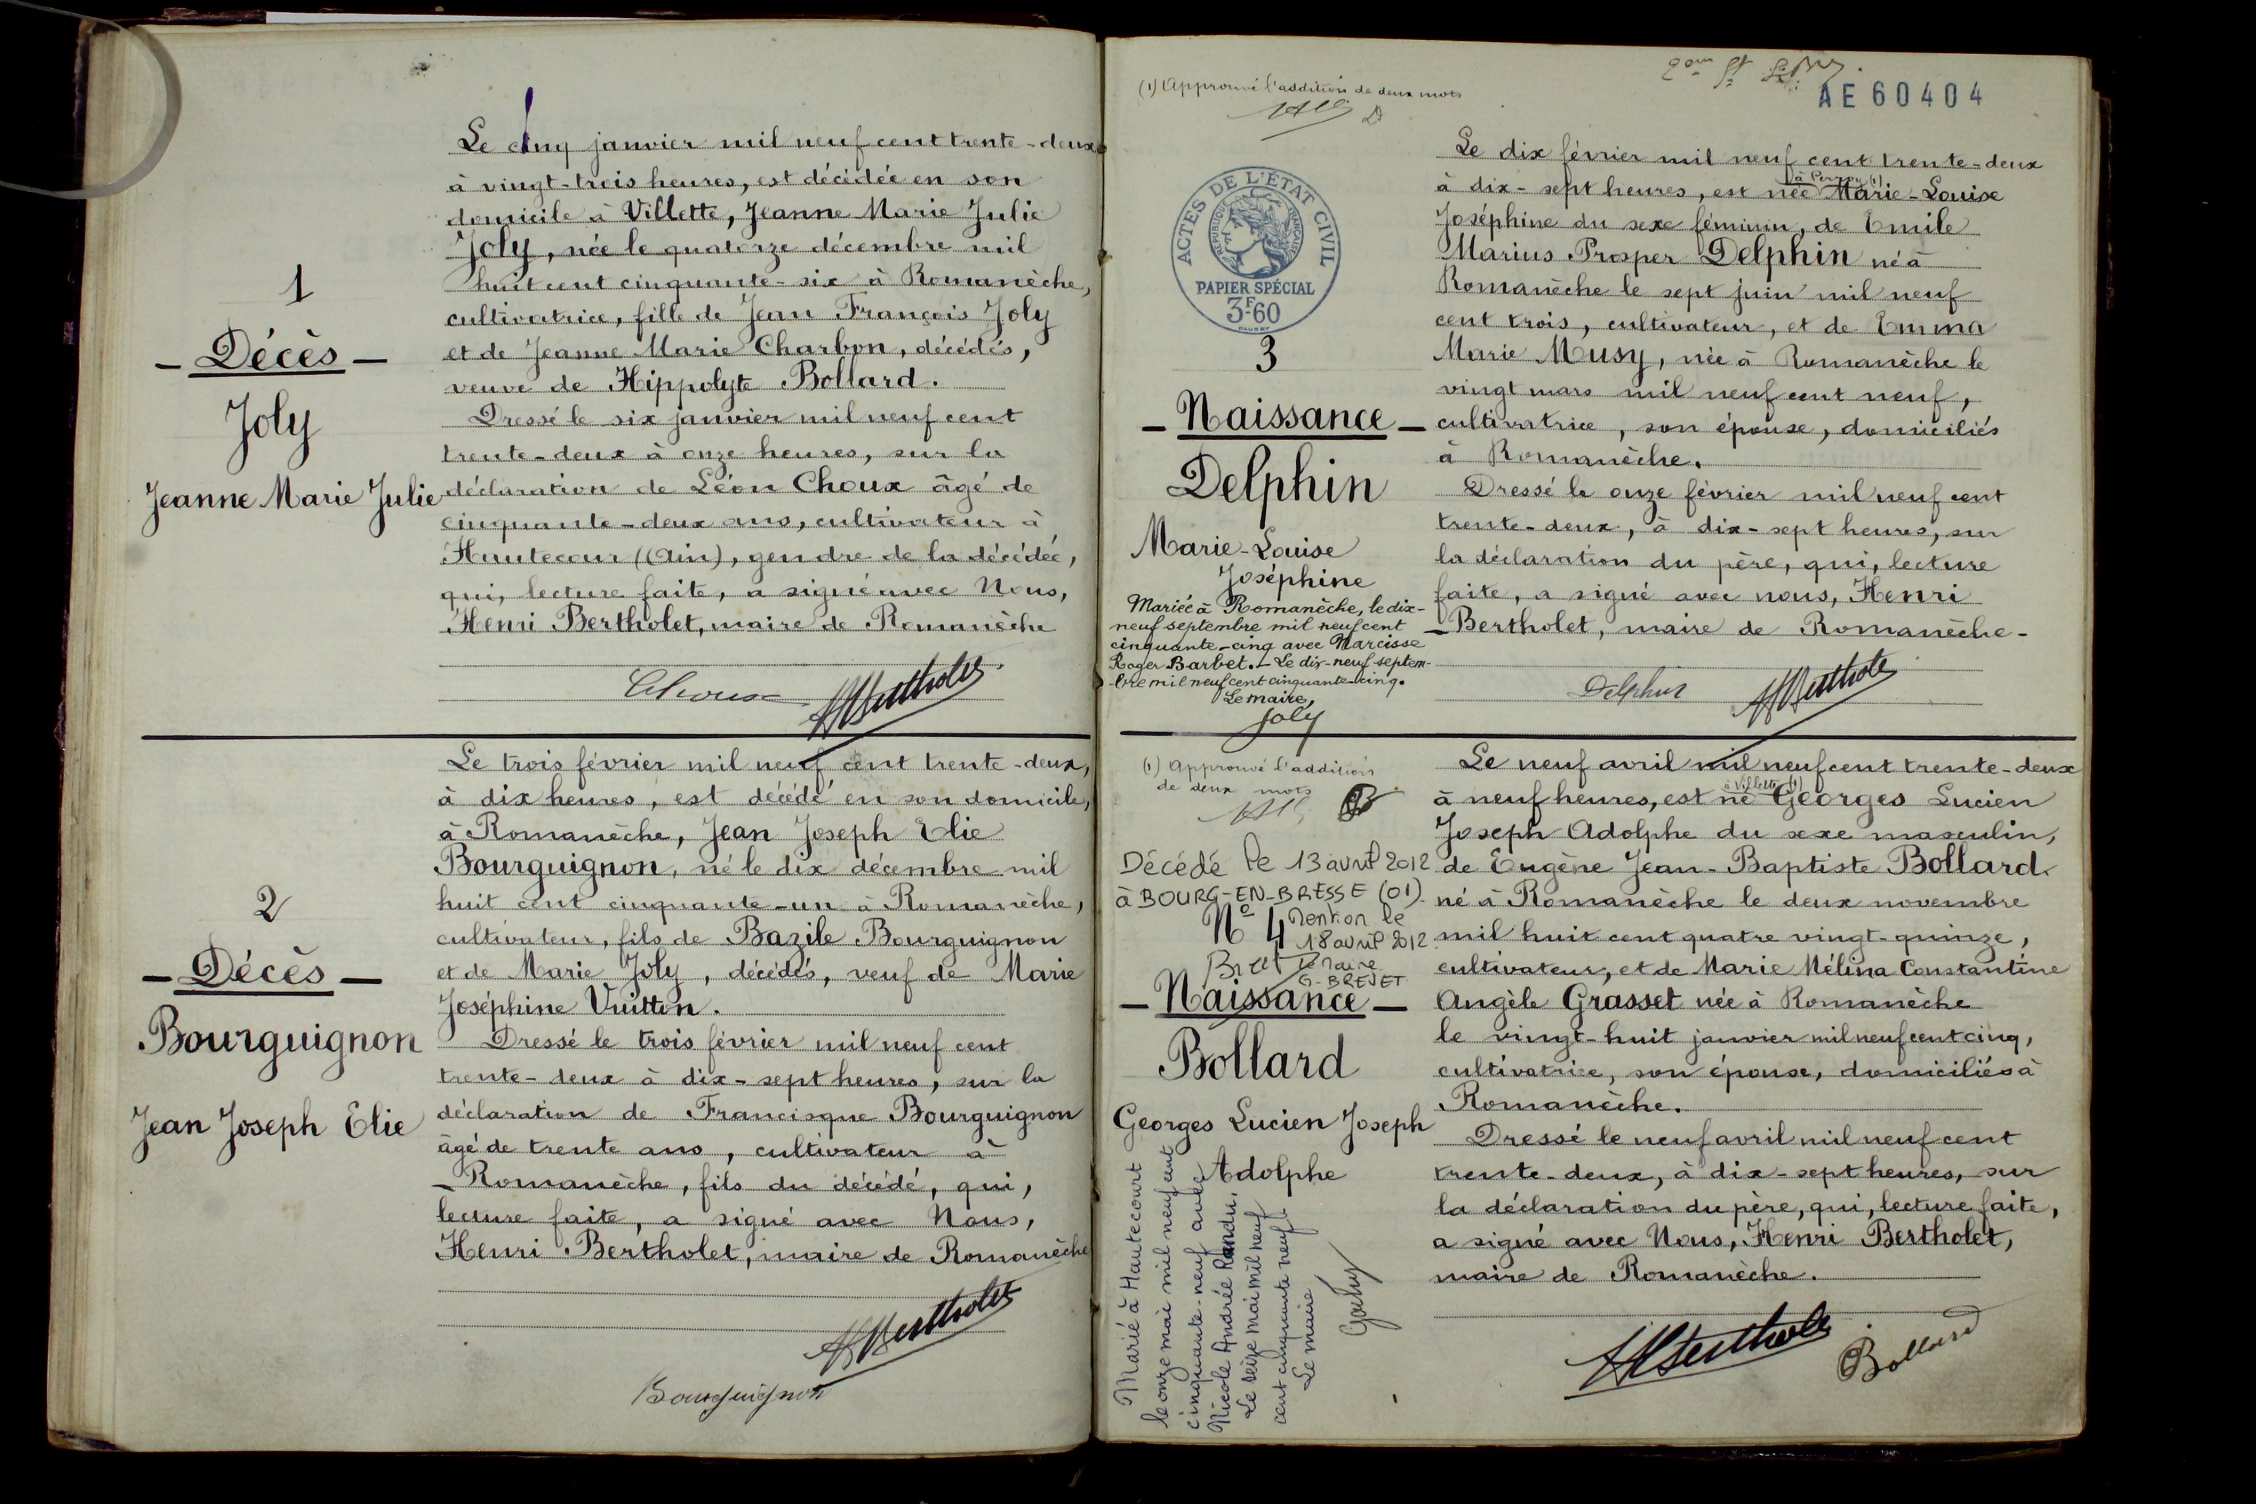 1
— Décès —
Joly
Jeanne Marie Julie
Le cinq janvier mil neuf cent trente-deux
à vingt-trois heures, est décédée en son
domicile à Villette, Jeanne Marie Julie
Joly, née le quatorze décembre mil
huit cent cinquante-six à Romanèche,
cultivatrice, fille de Jean François Joly
et de Jeanne Marie Charbon, décédés,
veuve de Hippolyte Bollard.
Dressé le six janvier mil neuf cent
trente-deux à onze heures, sur la
déclaration de Léon Choux âgé de
cinquante-deux ans, cultivateur à
Hautecour (Ain), gendre de la décédée,
qui, lecture faite, a signé avec Nous,
Henri Bertholet, maire de Romanèche
Choux HBertholet
2
— Décès —
Bourguignon
Jean Joseph Elie
Le trois février mil neuf cent trente-deux,
à dix heures, est décédé en son domicile,
à Romanèche, Jean Joseph Elie
Bourguignon, né le dix décembre mil
huit cent cinquante-un à Romanèche,
cultivateur, fils de Bazile Bourguignon
et de Marie Joly, décédés, veuf de Marie
Joséphine Vuitton.
Dressé le trois février mil neuf cent
trente-deux à dix-sept heures, sur la
déclaration de Francisque Bourguignon
âgé de trente ans, cultivateur à
Romanèche, fils du décédé, qui,
lecture faite, a signé avec Nous,
Henri Bertholet, maire de Romanèche
HBertholet
Bourguignon
AE 60404
(1) Approuvé l'addition de deux mots
ACTES DE L'ÉTAT CIVIL
RÉPUBLIQUE FRANÇAISE
PAPIER SPÉCIAL
3F60
3
— Naissance —
Delphin
Marie-Louise
Joséphine
Mariée à Romanèche, le dix-
neuf septembre mil neuf cent
cinquante-cinq avec Narcisse
Roger Barbet. — Le dix-neuf septem-
-bre mil neuf cent cinquante-cinq.
Le maire,
Joly
Le dix février mil neuf cent trente-deux
à dix-sept heures, est née (1) Marie-Louise
Joséphine du sexe féminin, de Emile
Marius Prosper Delphin né à
Romanèche le sept juin mil neuf
cent trois, cultivateur, et de Emma
Marie Musy, née à Romanèche le
vingt mars mil neuf cent neuf,
cultivatrice, son épouse, domiciliés
à Romanèche.
Dressé le onze février mil neuf cent
trente-deux, à dix-sept heures, sur
la déclaration du père, qui, lecture
faite, a signé avec nous, Henri
Bertholet, maire de Romanèche-
Delphin HBertholet
(1) Approuvé l'addition
de deux mots
Décédé le 13 avril 2012
à BOURG-EN-BRESSE (01)
Mention le
18 avril 2012
Le Maire
G. BREVET
N° 4
— Naissance —
Bollard
Georges Lucien Joseph
Adolphe
Marié à Hautecourt
le onze mai mil neuf cent
cinquante-neuf avec
Nicole Andrée Randu.
Le seize mai mil neuf
cent cinquante neuf
Le maire
Le neuf avril mil neuf cent trente-deux
à neuf heures, est né à Villette (1) Georges Lucien
Joseph Adolphe du sexe masculin,
de Eugène Jean-Baptiste Bollard
né à Romanèche le deux novembre
mil huit cent quatre vingt-quinze,
cultivateur, et de Marie Mélina Constantine
Angèle Grasset née à Romanèche
le vingt-huit janvier mil neuf cent cinq,
cultivatrice, son épouse, domiciliés à
Romanèche.
Dressé le neuf avril mil neuf cent
trente-deux, à dix-sept heures, sur
la déclaration du père, qui, lecture faite,
a signé avec Nous, Henri Bertholet,
maire de Romanèche.
HBertholet Bollard